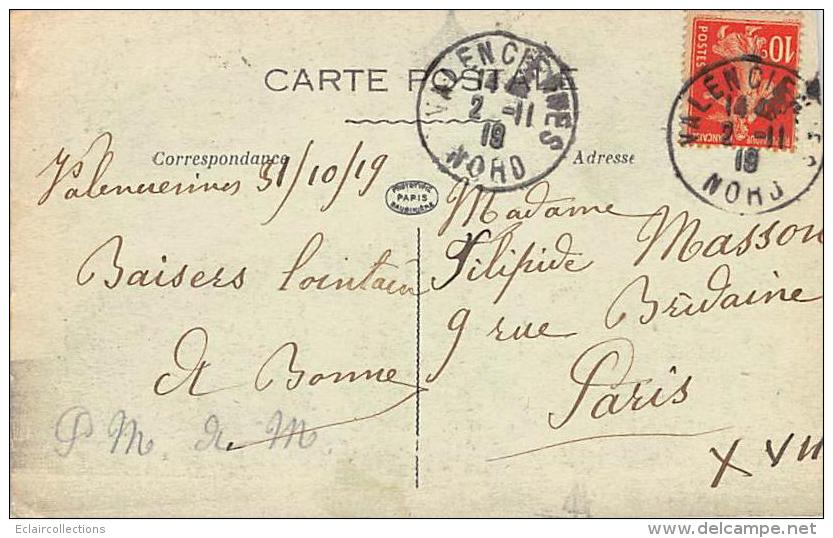 CARTE POSTALE
VALENCIENNES
14
2 -11
19
NORD
10c
POSTES
VALENCIE
14
2 -11
19
NORD
Correspondance
Adresse
Valenciennes 31/10/19
PARIS
Baisers lointain
de Bonne
P M. de M.
Madame
Filipide Masson
9 rue Bridaine
Paris
XVII
Eclaircollections
delcampe.net